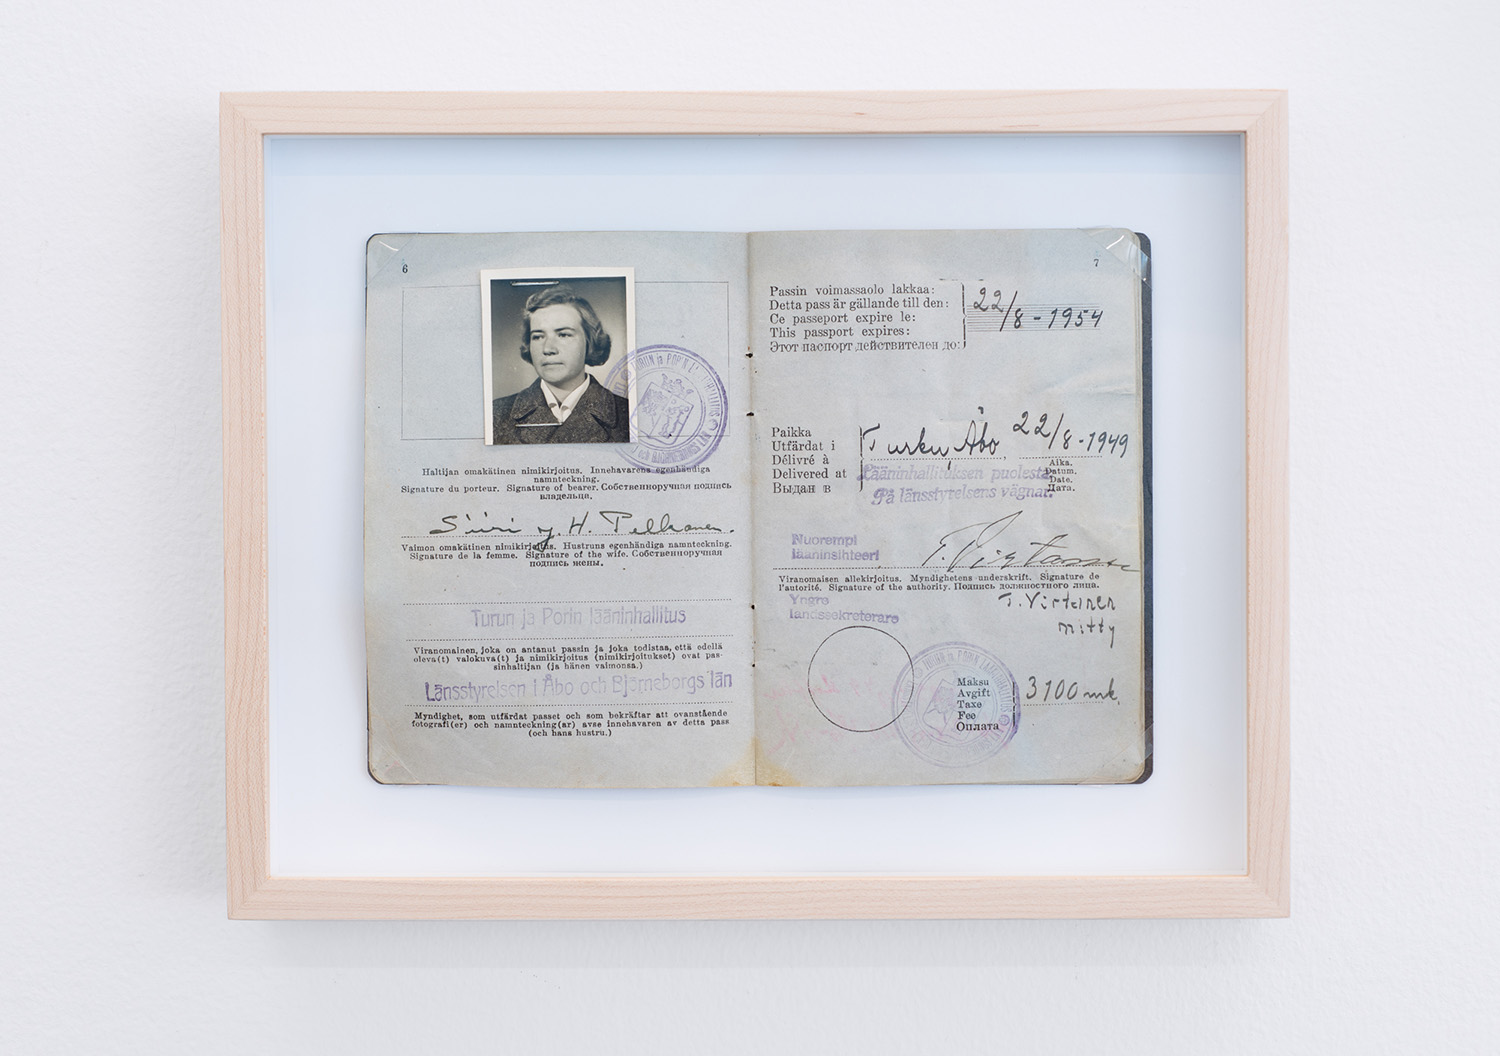 6
Haltijan omakätinen nimikirjoitus. Innehavarens egenhändiga
namnteckning.
Signature du porteur. Signature of bearer. Собственноручная подпись
владельца.
Siiri H. Pelkonen.
Vaimon omakätinen nimikirjoitus. Hustruns egenhändiga namnteckning.
Signature de la femme. Signature of the wife. Собственноручная
подпись жены.
Turun ja Porin lääninhallitus
Viranomainen, joka on antanut passin ja joka todistaa, että edellä
oleva(t) valokuva(t) ja nimikirjoitus (nimikirjoitukset) ovat pas-
sinhaltijan (ja hänen vaimonsa.)
Länsstyrelsen i Åbo och Björneborgs län
Myndighet, som utfärdat passet och som bekräftar att ovanstående
fotografi(er) och namnteckning(ar) avse innehavaren av detta pass
(och hans hustru.)
7
Passin voimassaolo lakkaa:
Detta pass är gällande till den:
Ce passeport expire le:
This passport expires:
Этот паспорт действителен до:
22/8-1954
Paikka
Utfärdat i
Délivré à
Delivered at
Выдан в
Turku, Åbo 22/8-1949
Aika.
Datum.
Date.
Дата.
Lääninhallituksen puolesta
På länsstyrelsens vägnar.
Nuorempi
lääninsihteeri
T. Virtanen
Viranomaisen allekirjoitus. Myndighetens underskrift. Signature de
l'autorité. Signature of the authority. Подпись должностного лица.
T. Virtanen
Yngre
landssekreterare
Maksu
Avgift
Taxe
Fee
Оплата
3100 mk.